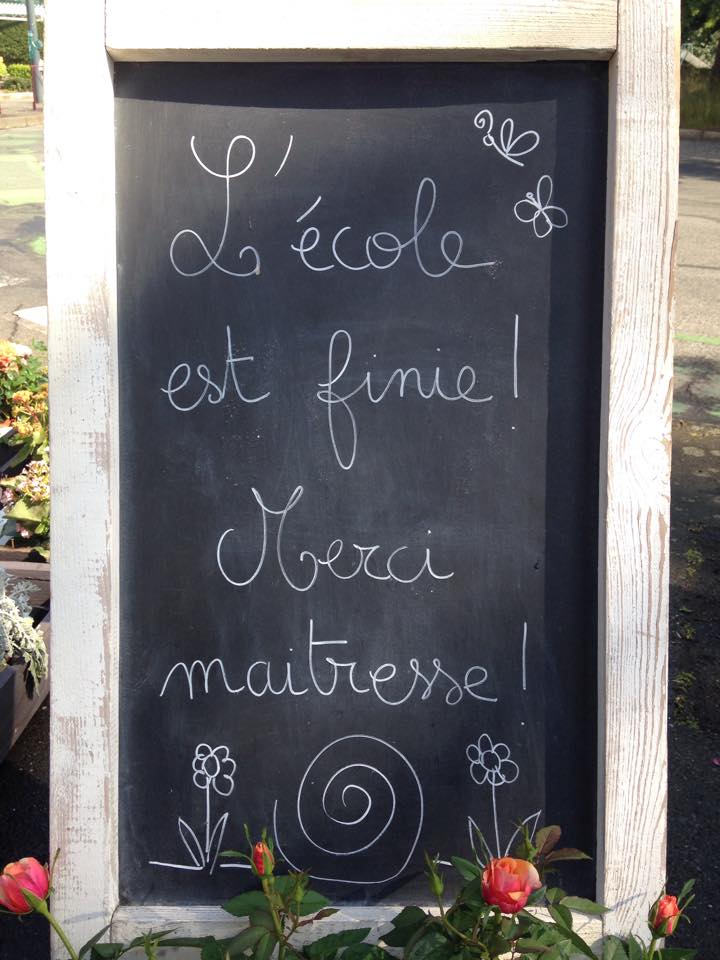 L'école
est finie !
Merci
maitresse !